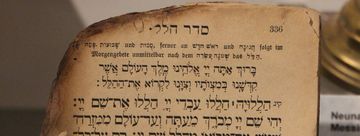 סדר הלל
336
פסח, שבועות und סכות, ferner an ראש חדש und חנוכה folgt im
Morgengebete unmittelbar nach dem שמונה עשרה das הלל.
בָּרוּךְ אַתָּה יְיָ אֱלֹהֵינוּ מֶלֶךְ הָעוֹלָם אֲשֶׁר
קִדְּשָׁנוּ בְּמִצְוֹתָיו וְצִוָּנוּ לִקְרוֹא אֶת־הַהַלֵּל:
הַלְלוּיָהּ הַלְלוּ עַבְדֵי יְיָ הַלְלוּ אֶת־שֵׁם יְיָ:
יְהִי שֵׁם יְיָ מְבֹרָךְ מֵעַתָּה וְעַד־עוֹלָם מִמִּזְרַח־
Neuma